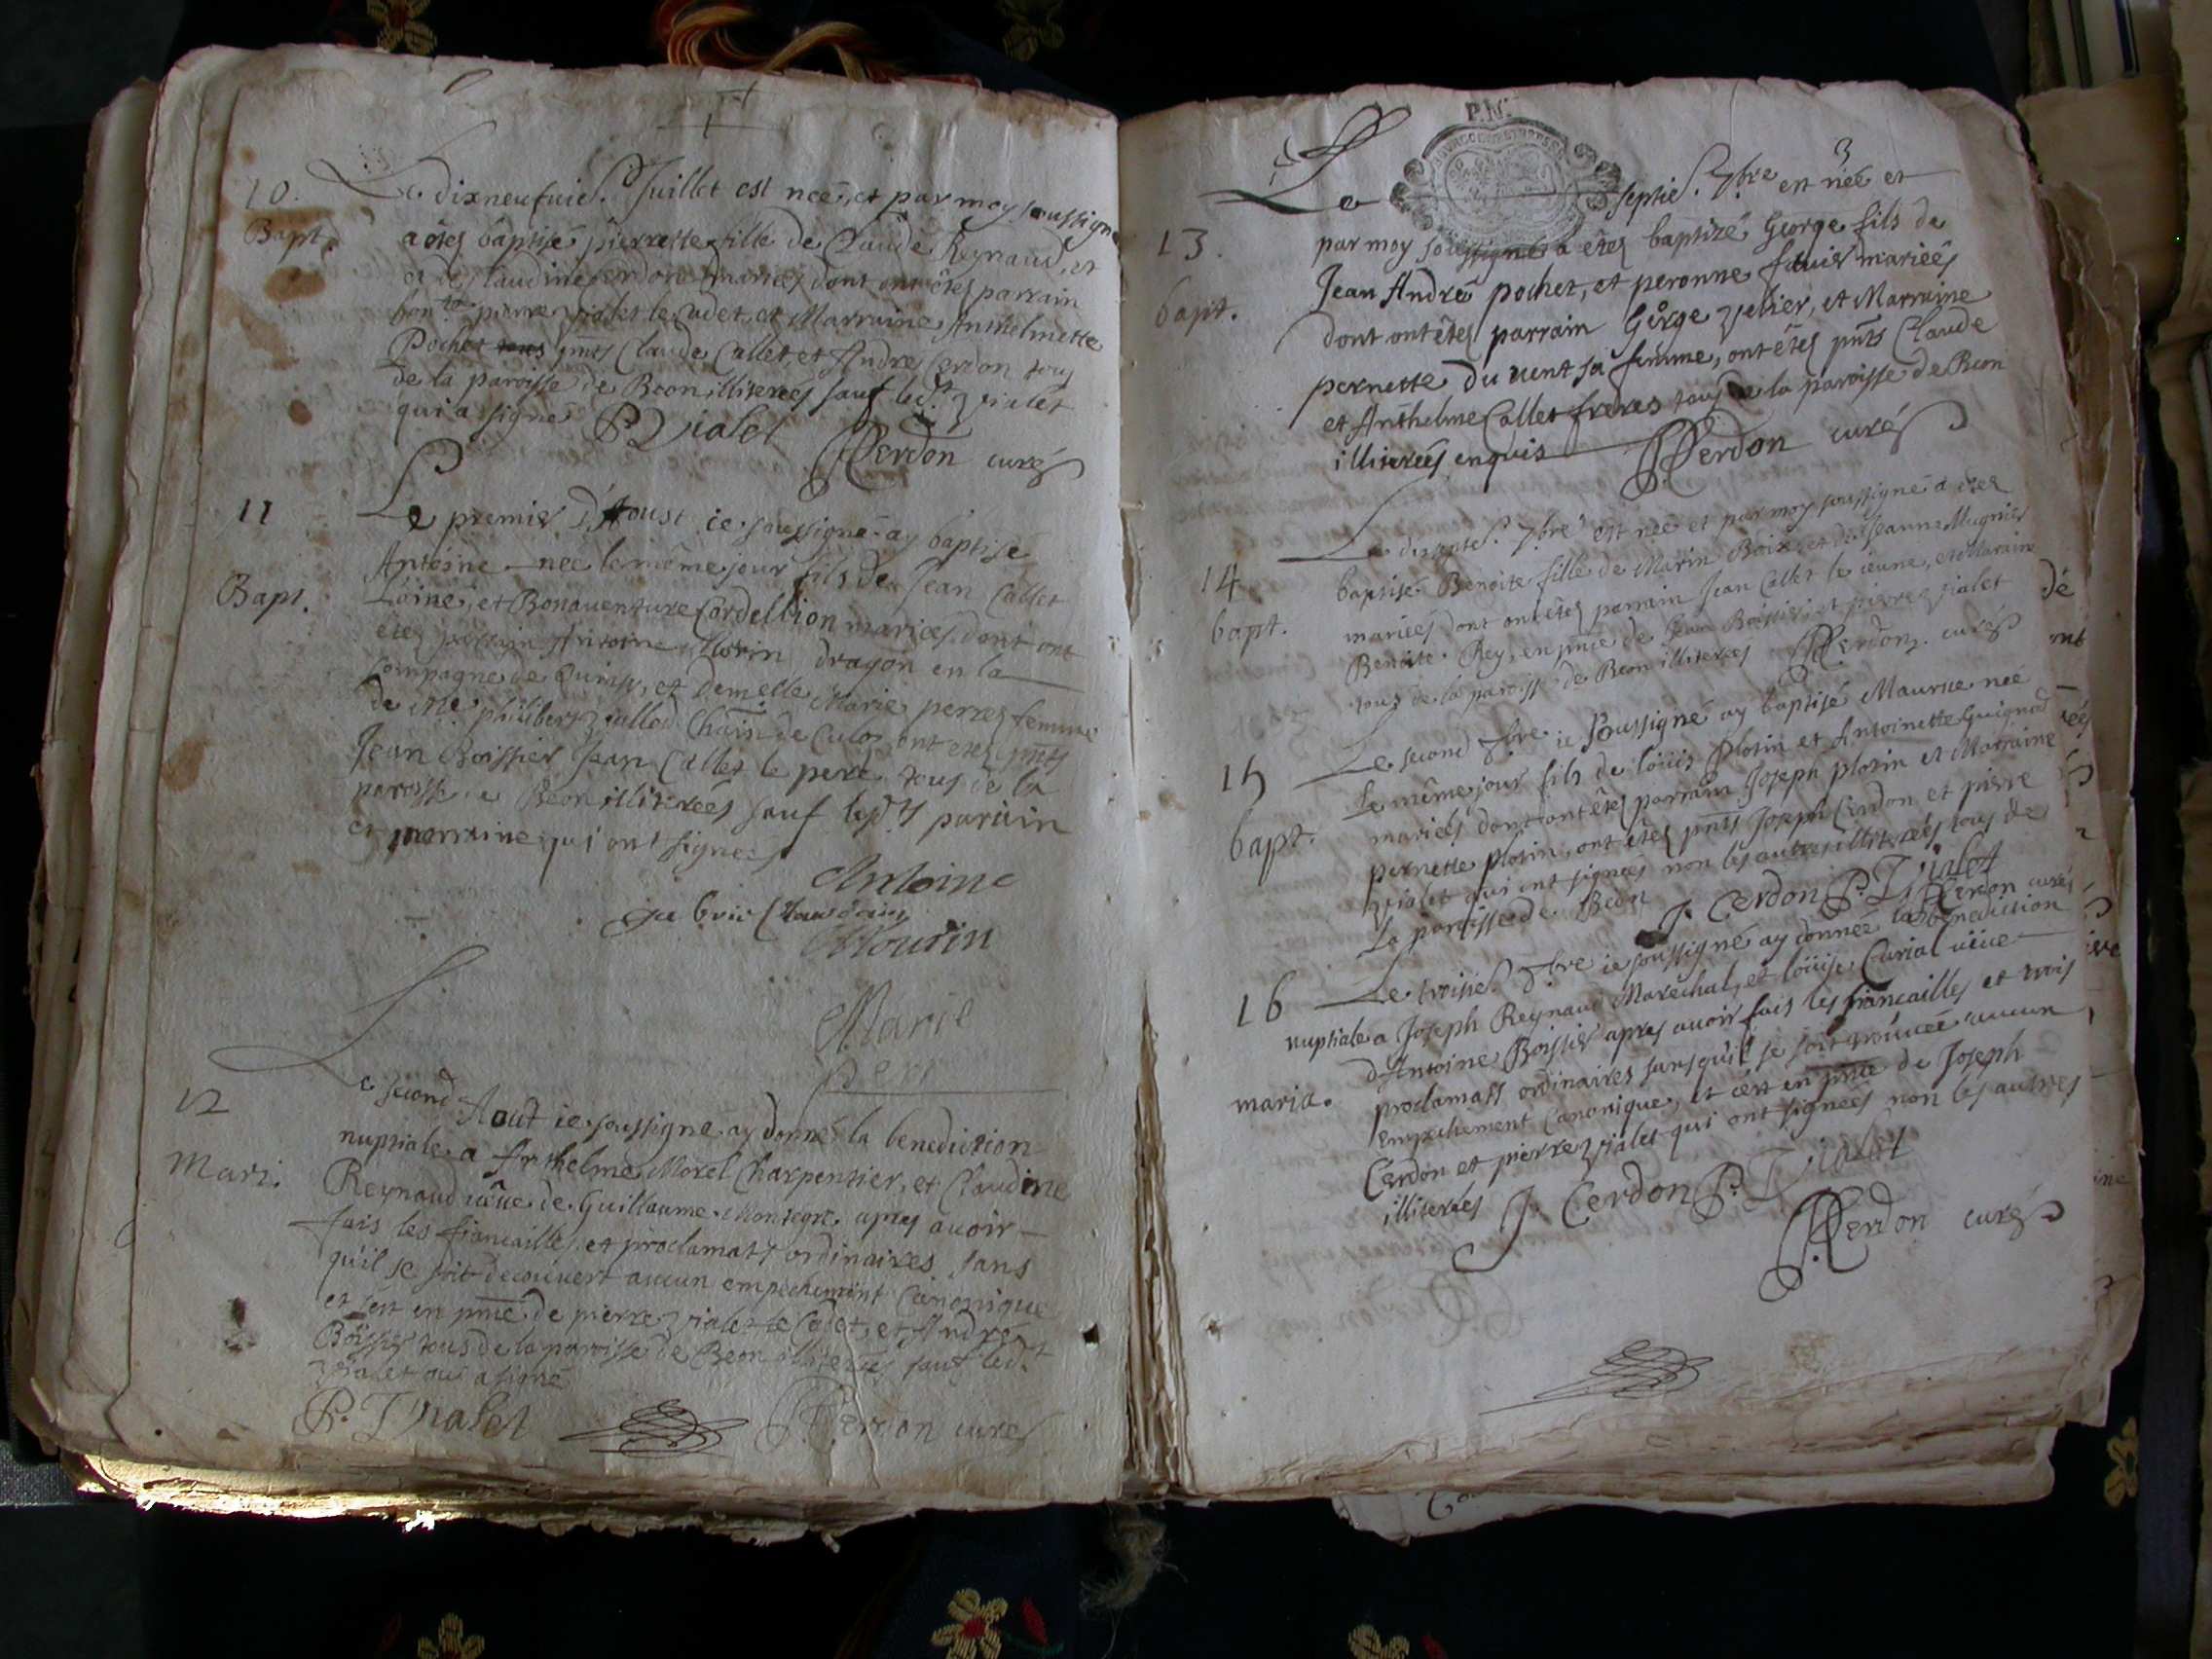 10.
Bapt.
Le dixneufuie. Juillet est neé, et par moy soussigné
a êtez baptisé pierrette fille de Claude Reynaud, et
et de Claudine Cerdon mariez dont ont êtez parrain
pierre vialet le Cadet, et Marraine Anthelmette
Pochet pnts Claude Callet, et André Cerdon tous
de la paroisse de Beon illitereés sauf led.t vialet
qui a signé P. Vialet
Cerdon curé
11
Bapt.
Le premier d'Aoust ie soussigné ay baptisé
Antoine neé le même jour fils de Jean Callet
L'oiné, et Bonauenture Cordellion marieés dont ont
êtez parrain Antoine Morin dragon en la
Compagnie de et Demelle Marie perrez femme
de Me. philibert de Culoz, ont etez pnts
Jean Boissier Jean Callet le pere tous de la
paroisse de Beon illitereés sauf parain
et marraine qui ont signeés
Antoine
Mourin
Marie
perr
12
Mari.
Le second Aout ie soussigne ay donné la benediction
nuptiale a Anthelme Morel Charpentier, et Claudine
Reynaud vëue de Guillaume apres auoir
fais les fiancailles, et proclamatss ordinaires sans
qu'il se soit decouuert aucun empechement Canonique
et c'est en pnce de pierre vialet le Cadet, et André
Boissier tous de la paroisse de Beon illitereés sauf led.t
vialet qui a signé
P. Vialet Cerdon curé
P.M.
3
Le septie. 7bre est neé et
13.
bapt.
par moy soussigné a êtez baptizé George fils de
Jean André pochet, et peronne marieés
dont ont êtez parrain George velier, et Marraine
pernette du uent sa femme, ont êtez pnts Claude
et Anthelme Callet freres tous de la paroisse de Beon
illitereés enquis Cerdon curé
14
bapt.
Le 7bre est neé et par moy soussigné a etez
baptisé Benoite fille de Marin Boix et de Jeanne Mugnier
marieés dont ont êtez parrain Jean Callet le ieune, et Maraine
Benoite Rey, en pnce de Jean Boissier et pierre vialet
tous de la paroisse de Beon illitereés Cerdon curé
15
bapt.
Le second ie soussigné ay baptisé Maurice neé
Le même jour fils de loüis plotin et Antoinette Guignod
marieés dont ont êtez parrain Joseph plotin et Marraine
pernette plotin, ont êtez pnts Joseph Cerdon et pierre
vialet qui ont signeés non les autres illitereés tous de
La paroisse de Beon J. Cerdon P. Vialet
Cerdon curé
16
maria.
Le troisie. ie soussigné ay donneé la benediction
nuptiale a Joseph Reynaud Marechal, et loüise Curial vëue
d'Antoine Boissier apres auoir fais les fiancailles et trois
proclamatss ordinaires sans qu'il se soit trouueé aucun
Empechement Canonique, et c'est en pnce de Joseph
Cerdon et pierre vialet qui ont signeés non les autres
illitereés J. Cerdon P. Vialet
Cerdon curé